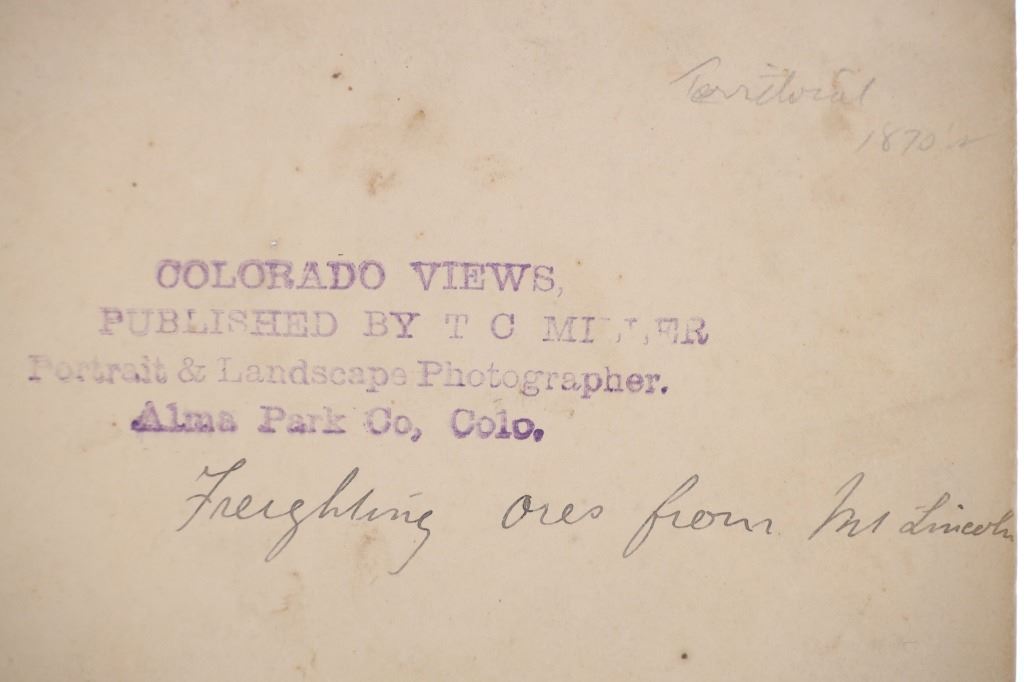 Territorial
1870's
COLORADO VIEWS,
PUBLISHED BY T C MILLER
Portrait & Landscape Photographer.
Alma Park Co, Colo.
Freighting Ores from Mt Lincoln